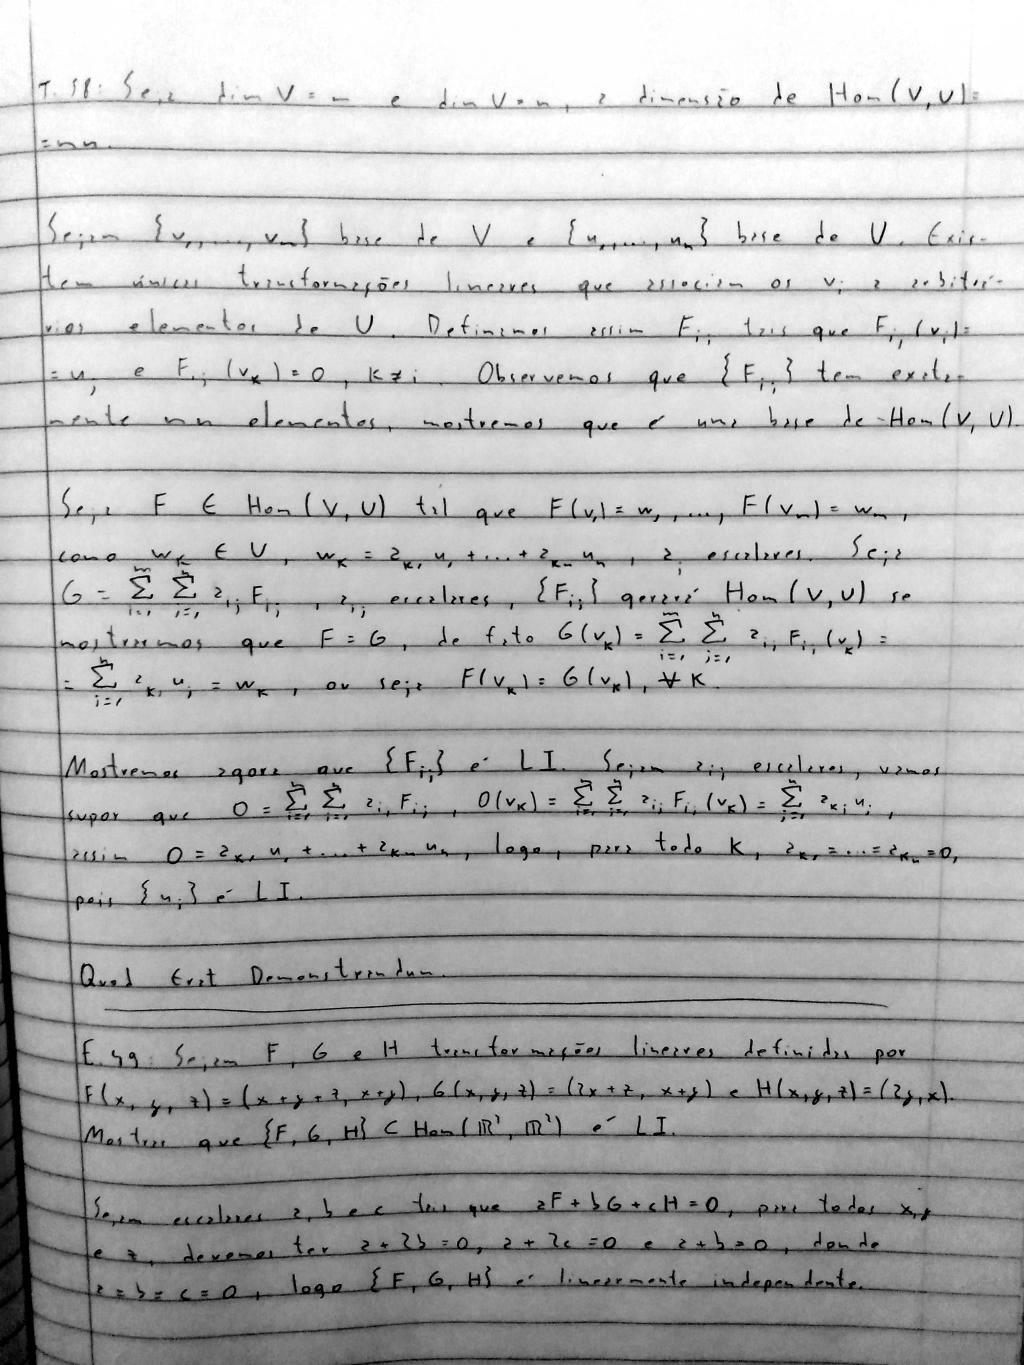 T. 58: Seja dim V = m e dim U = n, a dimensão de Hom(V, U) =
= mn.
Sejam {v₁, ..., vₘ} base de V e {u₁, ..., uₙ} base de U. Exis-
tem únicas transformações lineares que associam os vᵢ a arbitrá-
rios elementos de U. Definimos assim Fᵢⱼ tais que Fᵢⱼ(vᵢ) =
= uⱼ e Fᵢⱼ(vₖ) = 0, k ≠ i. Observemos que {Fᵢⱼ} tem exata-
mente mn elementos, mostremos que é uma base de Hom(V, U).
Seja F ∈ Hom(V, U) tal que F(v₁) = w₁, ..., F(vₘ) = wₘ,
como wₖ ∈ U, wₖ = aₖ₁ u₁ + ... + aₖₙ uₙ, aᵢ escalares. Seja
G = Σᵢ₌₁ᵐ Σⱼ₌₁ⁿ aᵢⱼ Fᵢⱼ, aᵢⱼ escalares, {Fᵢⱼ} gerará Hom(V, U) se
mostrarmos que F = G, de fato G(vₖ) = Σᵢ₌₁ᵐ Σⱼ₌₁ⁿ aᵢⱼ Fᵢⱼ(vₖ) =
= Σⱼ₌₁ⁿ aₖⱼ uⱼ = wₖ, ou seja F(vₖ) = G(vₖ), ∀ k.
Mostremos agora que {Fᵢⱼ} é LI. Sejam aᵢⱼ escalares, vamos
supor que 0 = Σᵢ₌₁ᵐ Σⱼ₌₁ⁿ aᵢⱼ Fᵢⱼ, 0(vₖ) = Σᵢ₌₁ᵐ Σⱼ₌₁ⁿ aᵢⱼ Fᵢⱼ(vₖ) = Σⱼ₌₁ⁿ aₖⱼ uⱼ,
assim 0 = aₖ₁ u₁ + ... + aₖₙ uₙ, logo, para todo k, aₖ₁ = ... = aₖₙ = 0,
pois {uⱼ} é LI.
Quod Erat Demonstrandum.
E. 49: Sejam F, G e H transformações lineares definidas por
F(x, y, z) = (x+y+z, x+y), G(x, y, z) = (2x+z, x+y) e H(x, y, z) = (2y, x).
Mostrar que {F, G, H} ⊂ Hom(ℝ³, ℝ²) é LI.
Sejam escalares a, b e c tais que aF + bG + cH = 0, para todos x, y
e z, devemos ter a + 2b = 0, a + 2c = 0 e a + b = 0, donde
a = b = c = 0, logo {F, G, H} é linearmente independente.